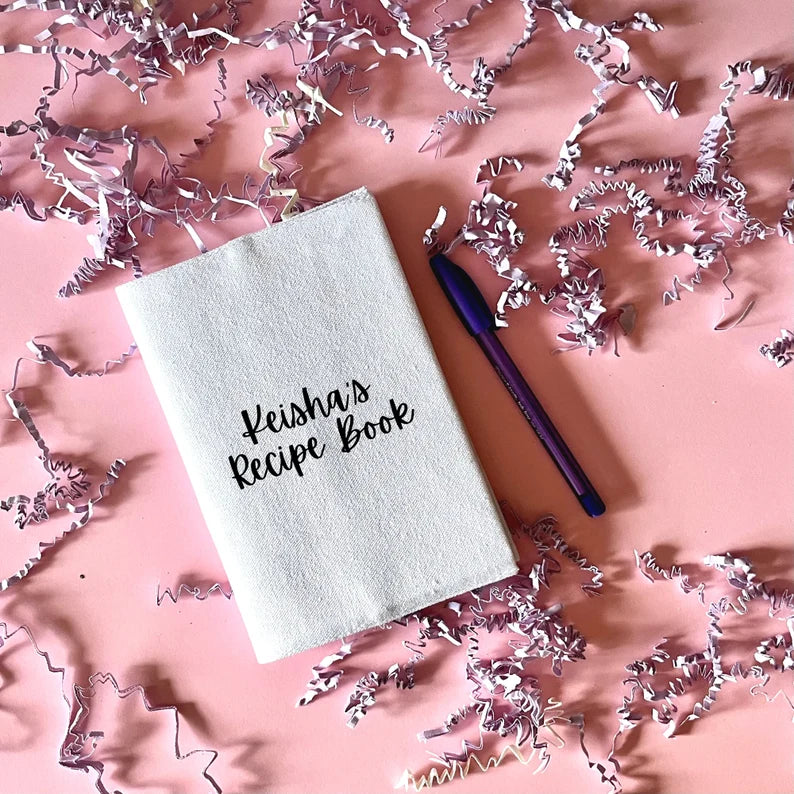 Keisha's
Recipe Book